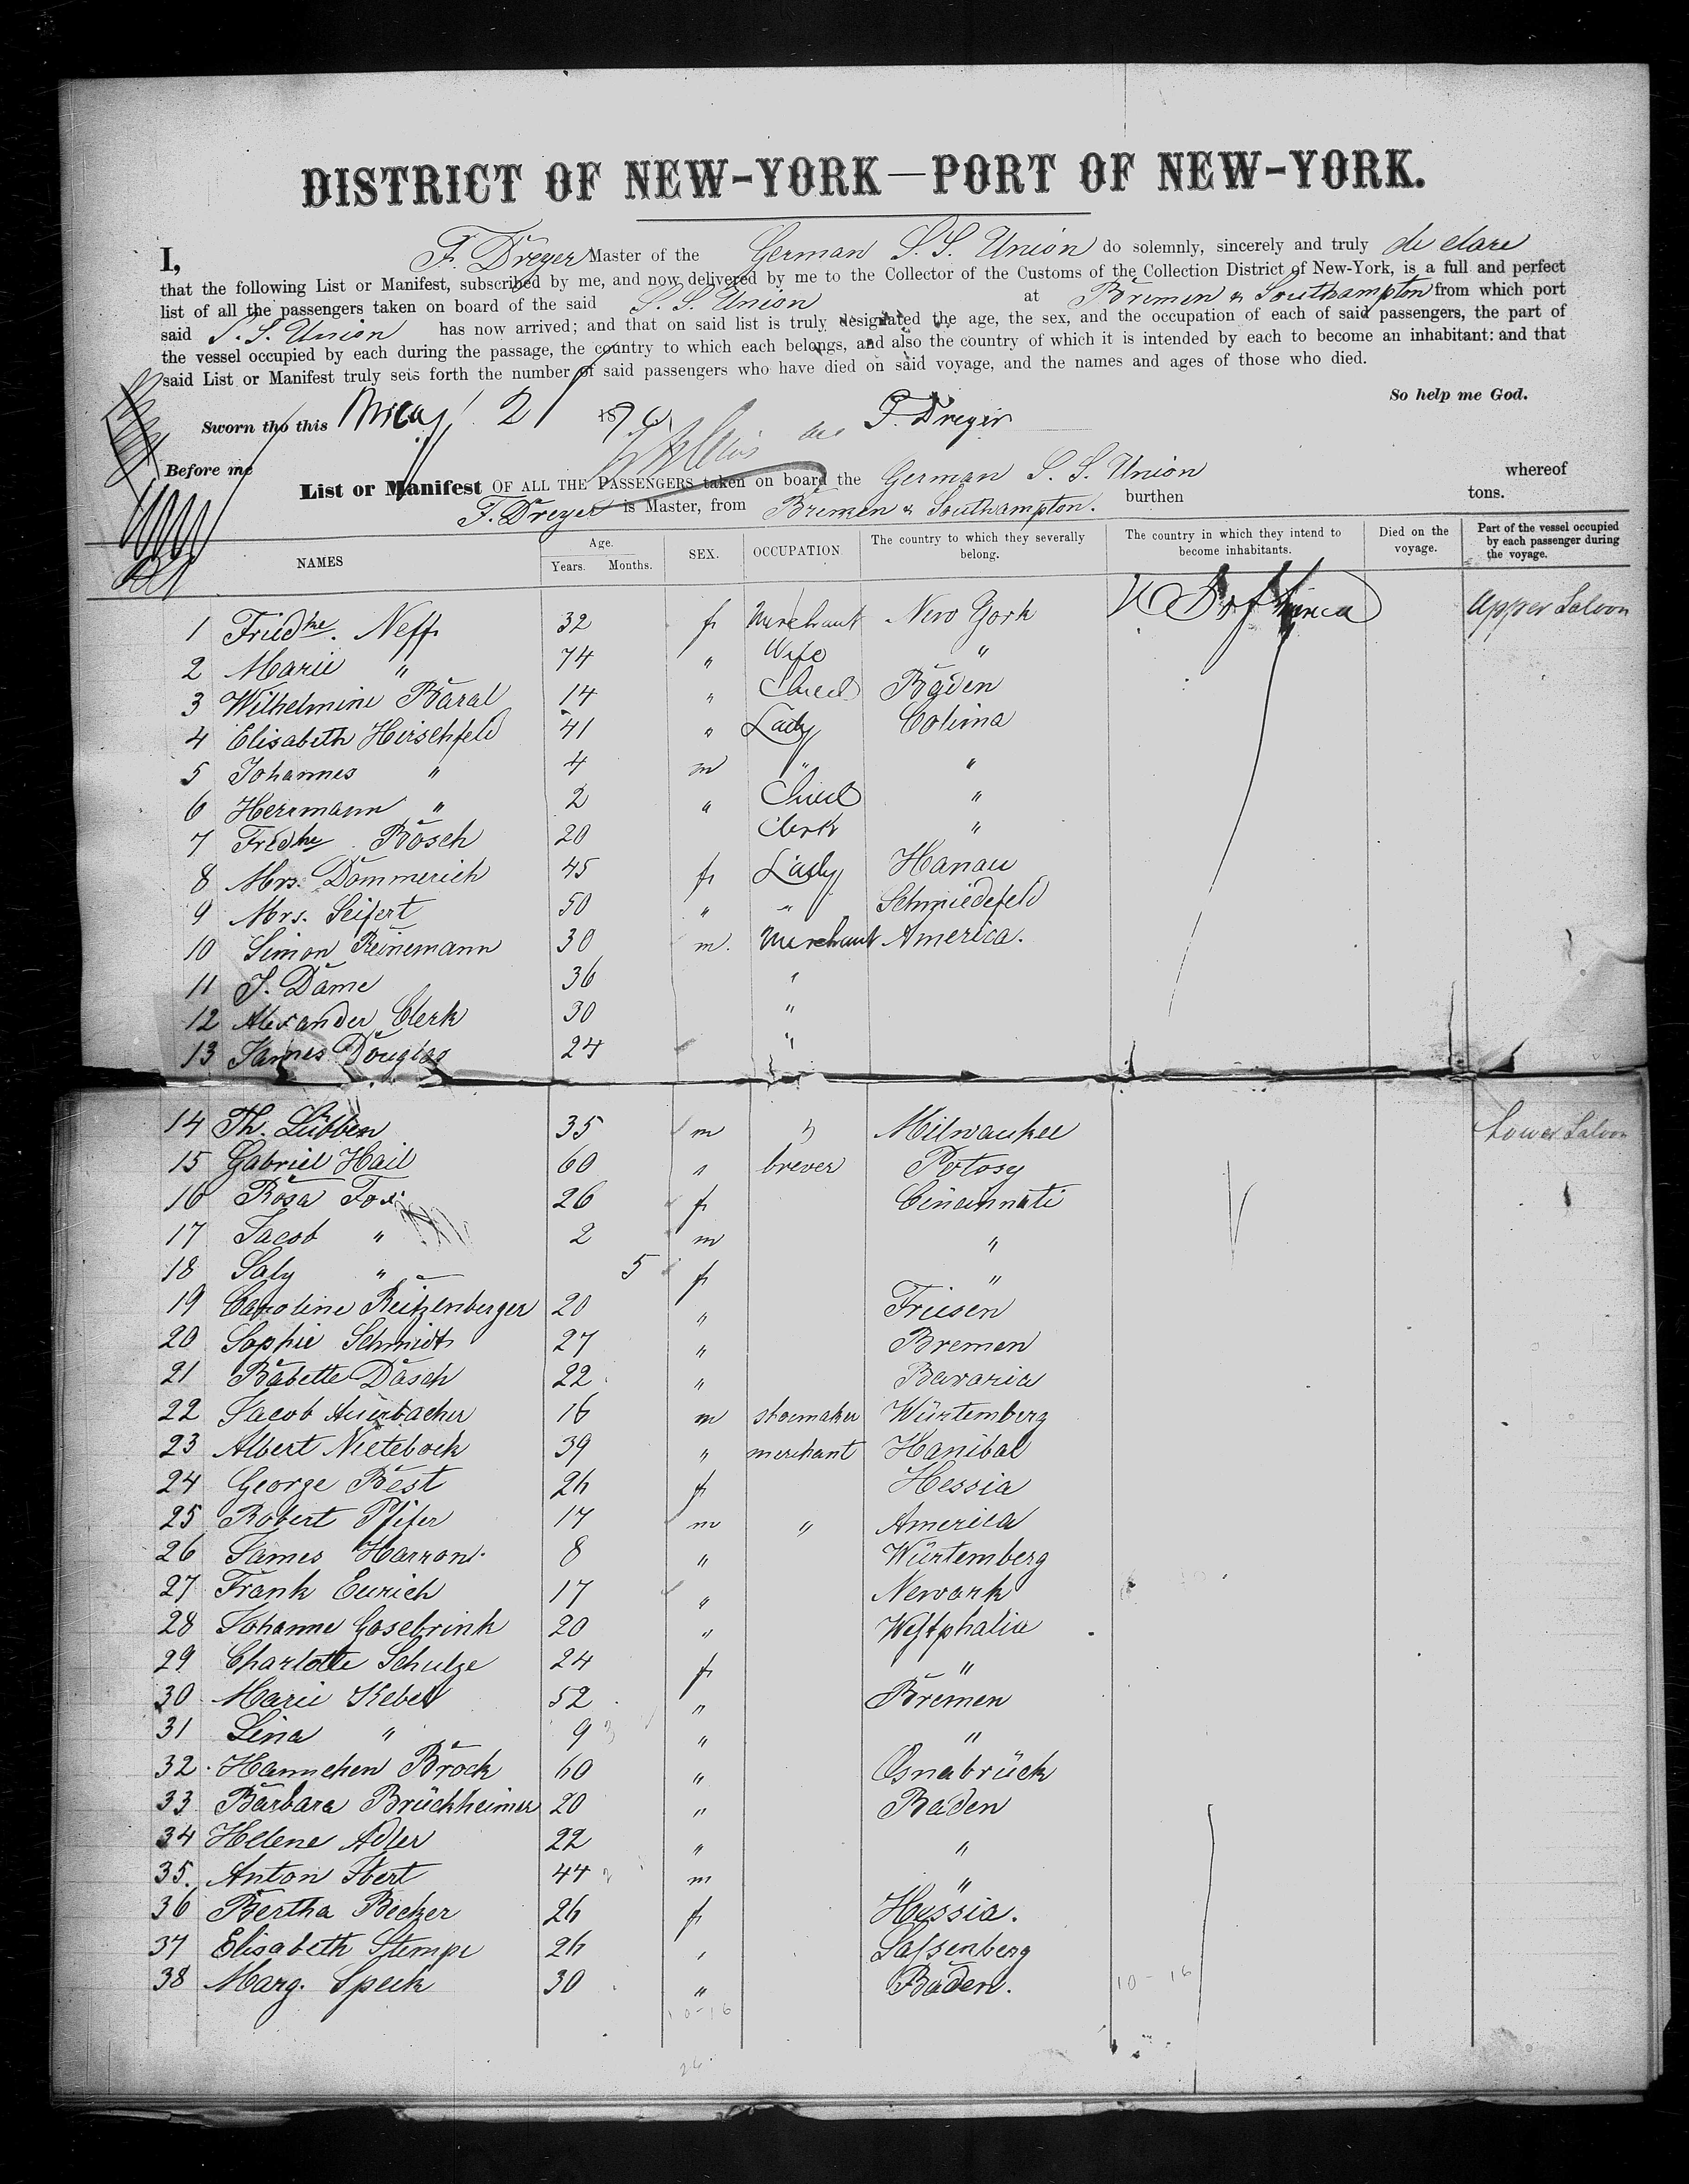 DISTRICT OF NEW-YORK—PORT OF NEW-YORK.
I, F. Dreyer Master of the German S.S. Union do solemnly, sincerely and truly declare
that the following List or Manifest, subscribed by me, and now delivered by me to the Collector of the Customs of the Collection District of New-York, is a full and perfect
list of all the passengers taken on board of the said S. S. Union at Bremen & Southampton from which port
said S. S. Union has now arrived; and that on said list is truly designated the age, the sex, and the occupation of each of said passengers, the part of
the vessel occupied by each during the passage, the country to which each belongs, and also the country of which it is intended by each to become an inhabitant: and that
said List or Manifest truly sets forth the number of said passengers who have died on said voyage, and the names and ages of those who died.
So help me God.
Sworn tho this May 21 1870 F. Dreyer
Before me
List or Manifest OF ALL THE PASSENGERS taken on board the German S. S. Union whereof
F. Dreyer is Master, from Bremen & Southampton. burthen tons.
NAMES Age. Years. Months. SEX. OCCUPATION The country to which they severally belong. The country in which they intend to become inhabitants. Died on the voyage. Part of the vessel occupied by each passenger during the voyage.
1 Friedke. Neff 32 f Merchant New York U S of America Upper Saloon
2 Marie " 74 " Wife "
3 Wilhelmine Baral 14 " Child Baden
4 Elisabeth Hirschfeld 41 " Lady Colima
5 Johannes " 4 m " "
6 Herrmann " 2 " Child "
7 Friedke Bosch 20 Clerk "
8 Mrs. Dommerich 45 f Lady Hanau
9 Mrs. Seifert 50 " " Schmiedefeld
10 Simon Reinemann 30 m. Merchant America.
11 J. Dame 36 "
12 Alexander Clerk 30 "
13 James Douglas 24 "
14 Th. Lübben 35 m " Milwaukee Lower Saloon
15 Gabriel Hail 60 " brever Potosy
16 Rosa Fox 26 f Cincinnati
17 Jacob " 2 m "
18 Saly " 5 f "
19 Caroline Reitzenberger 20 " Friesen
20 Sophie Schmidt 27 " Bremen
21 Babette Dasch 22 " Bavaria
22 Jacob Auerbacher 16 m shoemaker Würtemberg
23 Albert Nietebock 39 " merchant Hanibal
24 George Best 26 f Hessia
25 Robert Pfifer 17 m " America
26 James Harron. 8 " Würtemberg
27 Frank Eurich 17 " Newark
28 Johanne Gosebrink 20 " Westphalia
29 Charlotte Schulze 24 f "
30 Marie Kebel 52 " Bremen
31 Lina " 9 " "
32 Hannchen Brock 60 " Osnabrück
33 Barbara Brückheimer 20 " Baden
34 Helene Adler 22 " "
35. Anton Ibert 44 m "
36 Bertha Becker 26 f Hessia.
37 Elisabeth Stempe 26 " Sassenberg
38 Marg. Speck 30 " Baden.
10-16
10-16